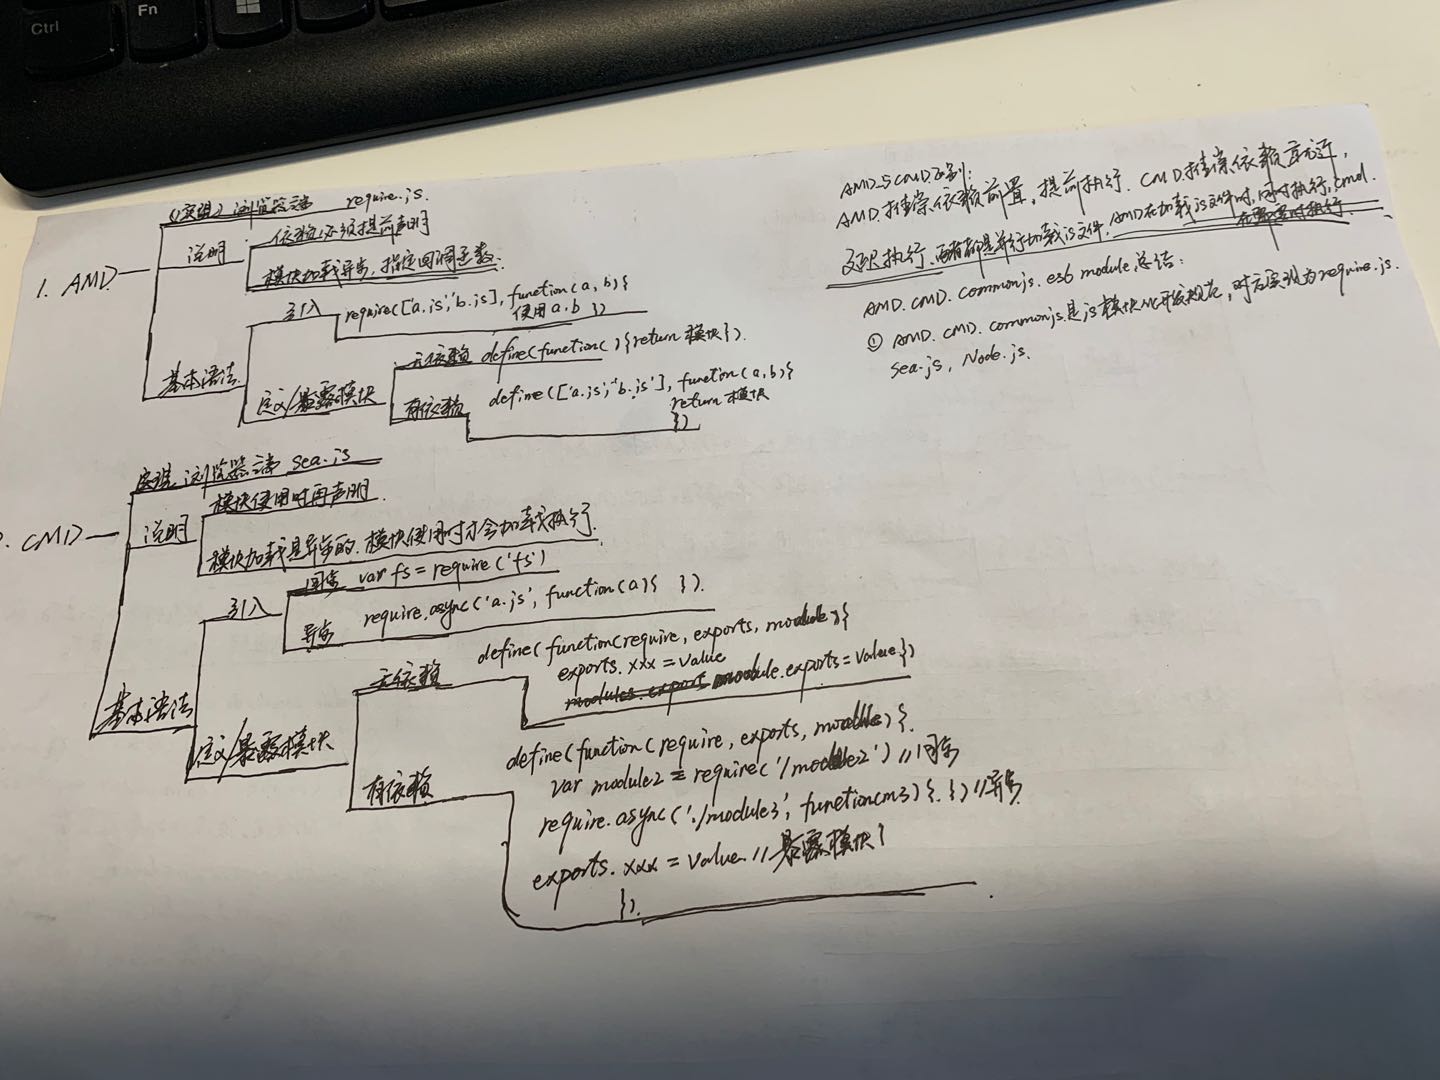 Ctrl
Fn
(实现) 浏览器端 require.js.
说明
依赖必须提前声明
模块加载异步, 指定回调函数.
1. AMD
引入
require(['a.js','b.js'], function(a, b){
使用a.b })
基本语法
定义/暴露模块
无依赖 define(function(){return 模块}).
有依赖
define(['a.js','b.js'], function(a,b){
return 模块
})
实现 浏览器端 sea.js
说明
模块使用时再声明
模块加载是异步的, 模块使用时才会加载执行.
. CMD
引入
同步 var fs = require('fs')
异步
require.async('a.js', function(a){ }).
基本语法
定义/暴露模块
无依赖
define(function(require, exports, module){
exports.xxx = value
modules.export module.exports = value})
有依赖
define(function(require, exports, module){
var module2 = require('/module2') //同步
require.async('./module3', function(m3){ }) //异步
exports.xxx = value //暴露模块
}).
AMD与CMD区别:
AMD.推崇依赖前置, 提前执行. CMD推崇依赖就近,
延迟执行. 两者都是并行加载js文件, AMD在加载js文件时, 同时执行, cmd.
在需要时执行.
AMD. CMD. commonjs. es6 module 总结:
① AMD. CMD. commonjs是js模块化开发规范, 对应实现为require.js.
sea.js, Node.js.